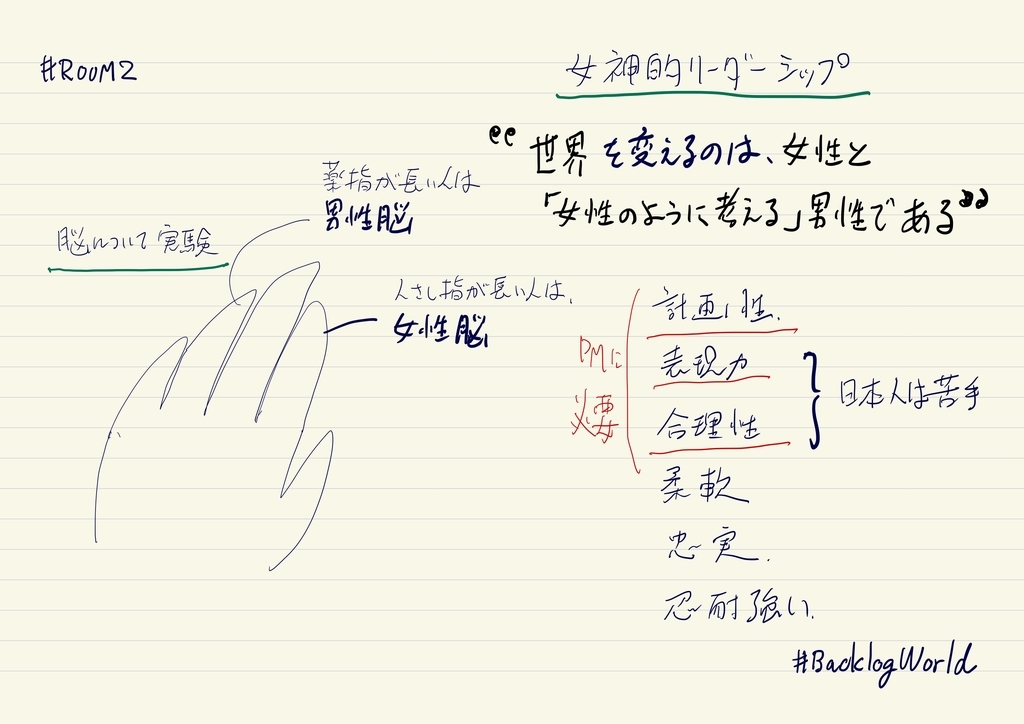 #ROOM2
女神的リーダーシップ
“世界を変えるのは、女性と
「女性のように考える」男性である”
脳について実験
薬指が長い人は
男性脳
人さし指が長い人は、
女性脳
PMに
必要
計画性、
表現力
合理性
日本人は苦手
柔軟
忠実、
忍耐強い、
#BacklogWorld